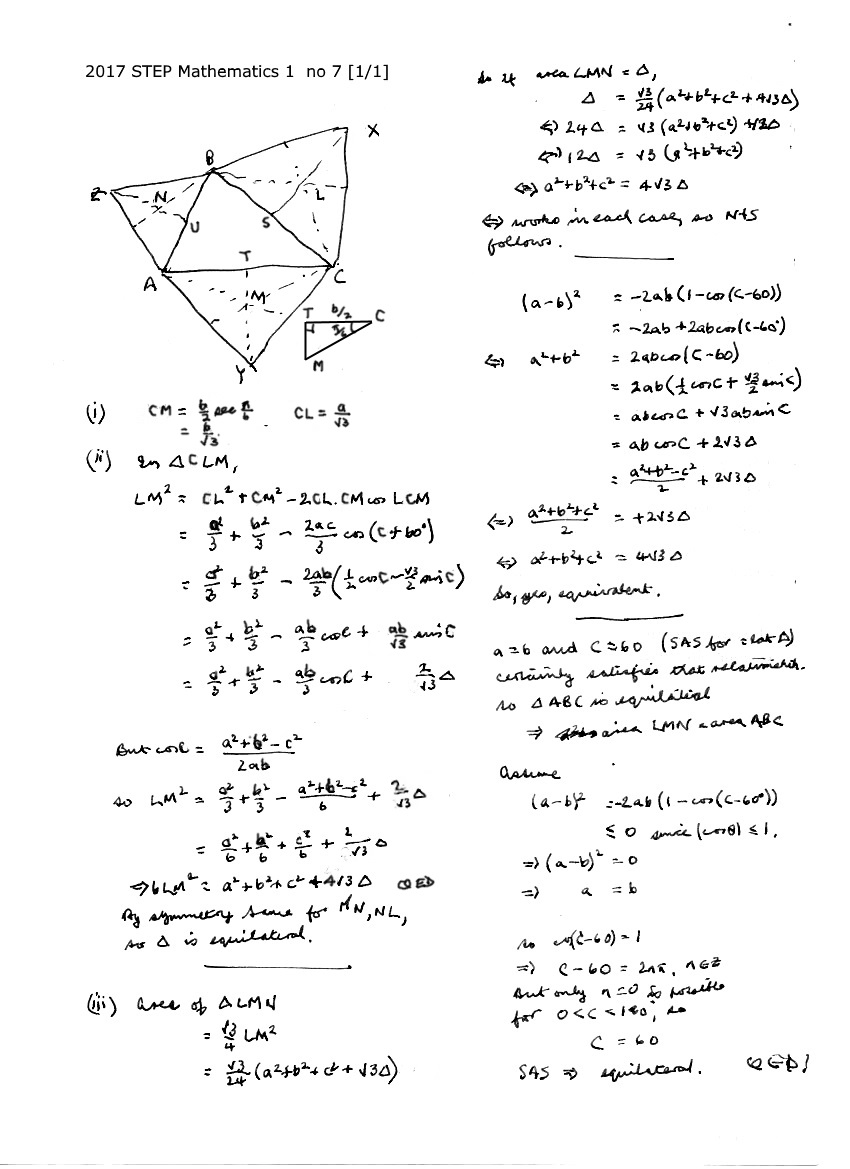 2017 STEP Mathematics 1 no 7 [1/1]
X
B
Z
N
L
U
S
T
A
C
M
Y
T b/2 C
π/6
M
(i) CM = b/2 sec π/6 CL = a/√3
= b/√3
(ii) In △CLM,
LM² = CL² + CM² - 2CL.CM cos LCM
= a²/3 + b²/3 - 2ac/3 cos(C+60°)
= a²/3 + b²/3 - 2ab/3 (1/2 cosC - √3/2 sinC)
= a²/3 + b²/3 - ab/3 cosC + ab/√3 sinC
= a²/3 + b²/3 - ab/3 cosC + 2/√3 Δ
But cosC = a²+b²-c²/2ab
so LM² = a²/3 + b²/3 - a²+b²-c²/6 + 2/√3 Δ
= a²/6 + b²/6 + c²/6 + 2/√3 Δ
⇒ 6LM² = a²+b²+c² + 4√3 Δ QED
By symmetry same for MN, NL,
so Δ is equilateral.
(iii) Area of △LMN
= √3/4 LM²
= √3/24 (a²+b²+c² + √3Δ)
So if area LMN = Δ,
Δ = √3/24 (a²+b²+c² + 4√3Δ)
⇔ 24Δ = √3 (a²+b²+c²) + 12Δ
⇔ 12Δ = √3 (a²+b²+c²)
⇔ a²+b²+c² = 4√3 Δ
⇔ works in each case, so N+S
follows.
(a-b)² = -2ab(1-cos(C-60))
= -2ab + 2abcos(C-60°)
⇔ a²+b² = 2abcos(C-60)
= 2ab(1/2 cosC + √3/2 sinC)
= abcosC + √3absinC
= ab cosC + 2√3Δ
= a²+b²-c²/2 + 2√3Δ
⇔ a²+b²+c²/2 = +2√3Δ
⇔ a²+b²+c² = 4√3Δ
So, yes, equivalent.
a=b and C=60 (SAS for that Δ)
certainly satisfies that relationship.
so ΔABC is equilateral
⇒ area LMN = area ABC
Assume
(a-b)² = -2ab(1-cos(C-60°))
≤ 0 since |cosθ| ≤ 1.
⇒ (a-b)² = 0
⇒ a = b
so cos(C-60) = 1
⇒ C-60 = 2nπ, n∈Z
But only n=0 is possible
for 0<C<180, so
C = 60
SAS ⇒ equilateral. QED!